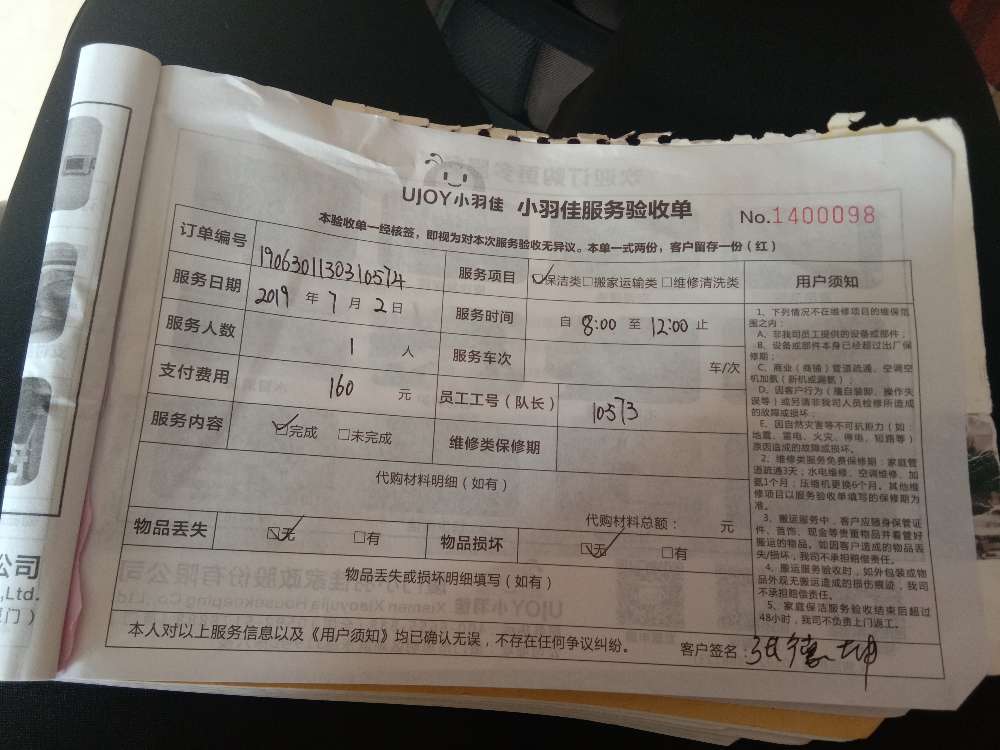 UJOY小羽佳 小羽佳服务验收单
No.1400098
本验收单一经核签，即视为对本次服务验收无异议。本单一式两份，客户留存一份（红）
订单编号 1906301130310574 服务项目 保洁类 搬家运输类 维修清洗类
服务日期 2019 年 7 月 2 日 服务时间 自 8:00 至 12:00 止
服务人数 1 人 服务车次 车/次
支付费用 160 元 员工工号（队长） 10573
服务内容 完成 未完成 维修类保修期
代购材料明细（如有）
代购材料总额： 元
物品丢失 无 有 物品损坏 无 有
物品丢失或损坏明细填写（如有）
本人对以上服务信息以及《用户须知》均已确认无误，不存在任何争议纠纷。 客户签名：张德坤
用户须知
1、下列情况不在维修项目的维保范
围之内：
A、非我司员工提供的设备或部件；
B、设备或部件本身已经超过出厂保
修期；
C、商业（商铺）管道疏通、空调空
机加氨（新机或漏氨）；
D、因客户行为（擅自装卸、操作失
误等）或另请非我司人员检修所造成
的故障或损坏；
E、因自然灾害等不可抗力（如：
地震、雷电、火灾、停电、短路等）
原因造成的故障或损坏。
2、维修类服务免费保修期：家庭管
道疏通3天；水电维修、空调维修、加
氨1个月；压缩机更换6个月。其他维
修项目以服务验收单填写的保修期为
准。
3、搬运服务中，客户应随身保管证
件、首饰、现金等贵重物品并看管好
搬运的物品。如因客户造成的物品丢
失/损坏，我司不承担赔偿责任。
4、搬运服务验收时，如外包装或物
品外观无搬运造成的损伤痕迹，我司
不承担赔偿责任。
5、家庭保洁服务验收结束后超过
48小时，我司不负责上门返工。
公司
,Ltd.
门）